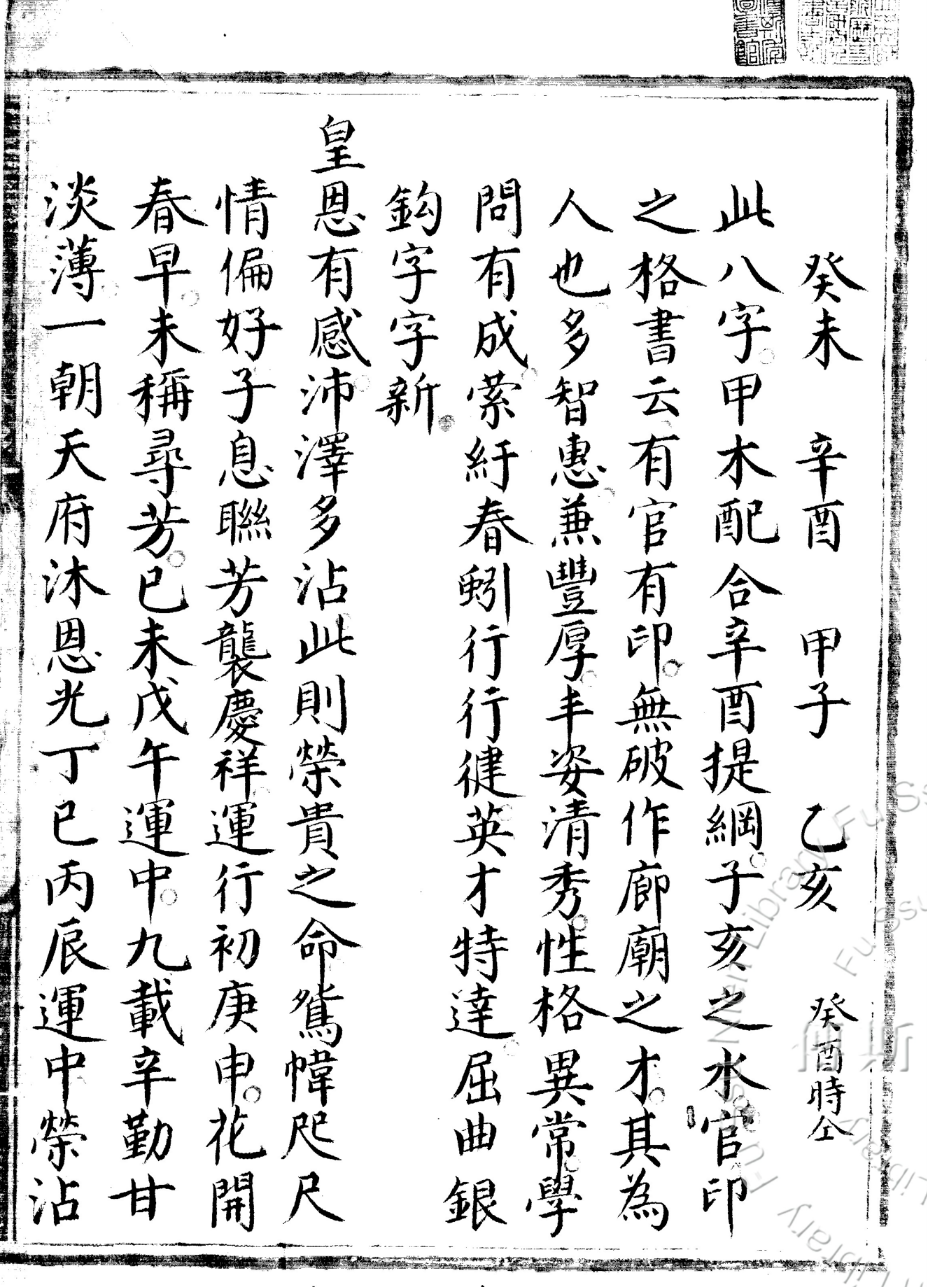 癸未　辛酉　甲子　乙亥　癸酉時仝
此八字甲木配合辛酉提綱子亥之水官印
之格書云有官有印無破作廊廟之才其為
人也多智惠兼豐厚丰姿清秀性格異常學
問有成縈紆春蚓行行健英才特達屈曲銀
鈎字字新
皇恩有感沛澤多沾此則榮貴之命鴛幃咫尺
情偏好子息聯芳襲慶祥運行初庚申花開
春早未稱尋芳已未戊午運中九載辛勤甘
淡薄一朝天府沐恩光丁巳丙辰運中榮沾